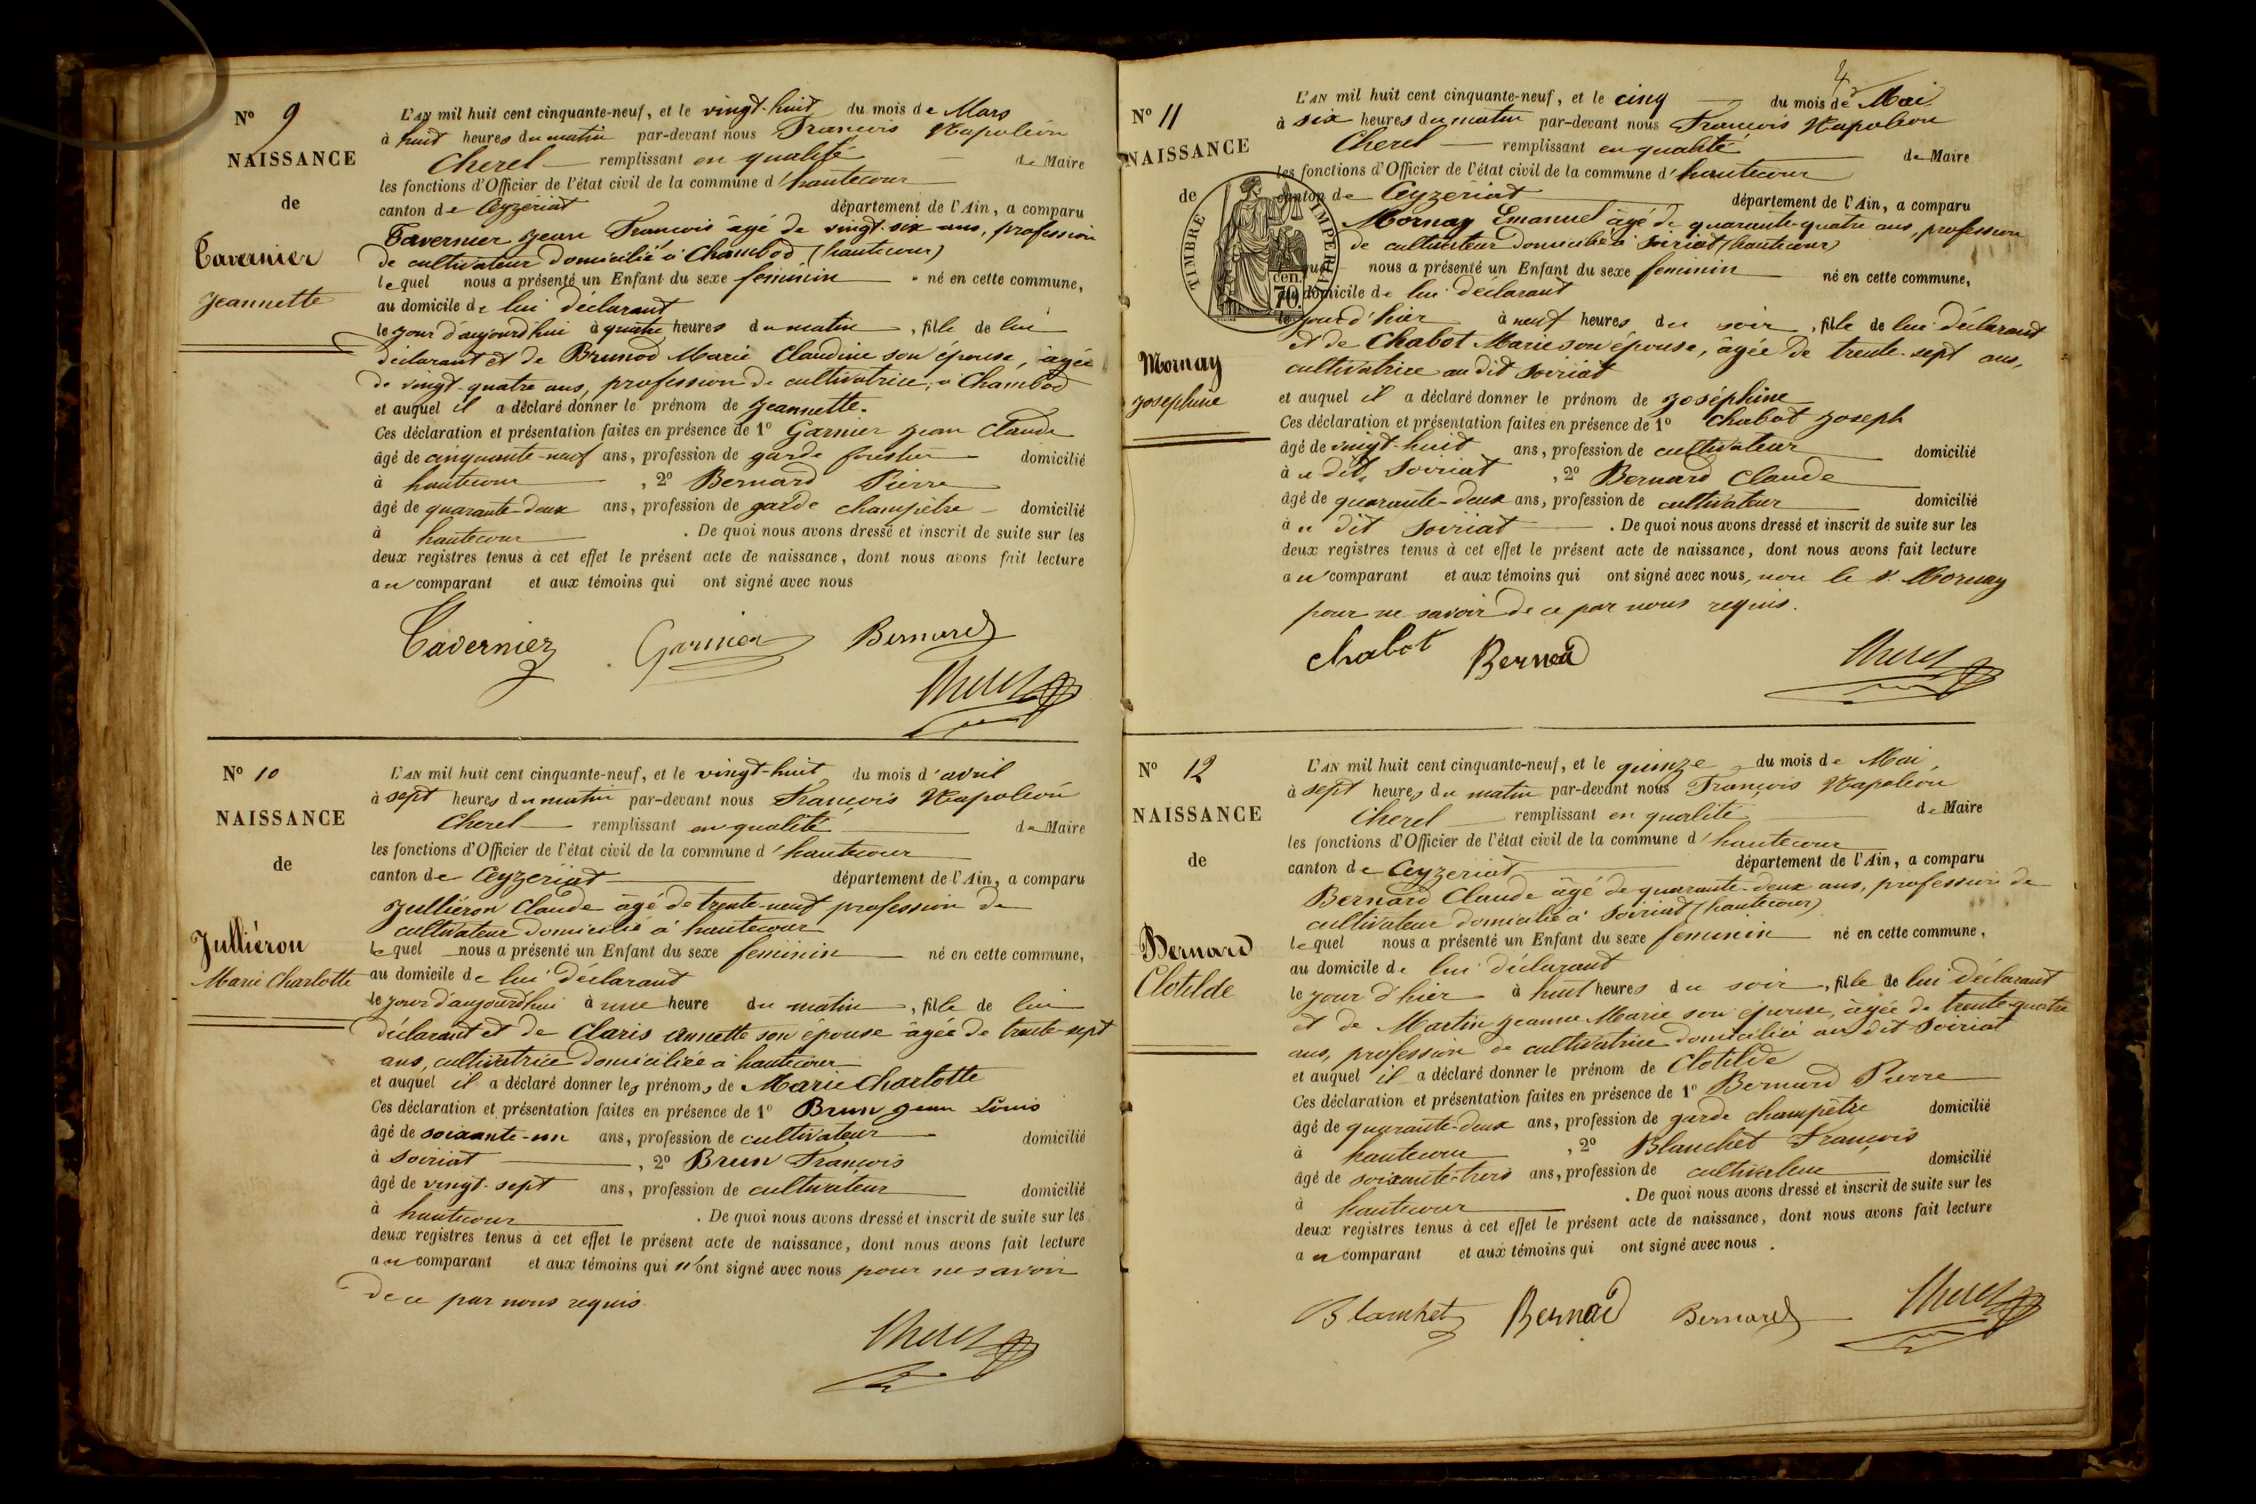 Nº 9
NAISSANCE
de
Tavernier
Jeannette
L'AN mil huit cent cinquante-neuf, et le vingt-huit du mois de Mars
à huit heures du matin par-devant nous François Napoléon
Cherel remplissant en qualité de Maire
les fonctions d'Officier de l'état civil de la commune d'hautecour
canton de Ceyzériat département de l'Ain, a comparu
Tavernier Jean François âgé de vingt-six ans, profession
de cultivateur domicilié à Chambod (hautecour)
lequel nous a présenté un Enfant du sexe féminin né en cette commune,
au domicile de lui déclarant
le jour d'aujourd'hui à quatre heures du matin, fille de lui
déclarant et de Brunod Marie Claudine son épouse, âgée
de vingt-quatre ans, profession de cultivatrice, à Chambod
et auquel il a déclaré donner le prénom de Jeannette.
Ces déclaration et présentation faites en présence de 1º Garnier Jean Claude
âgé de cinquante-neuf ans, profession de garde forestier domicilié
à hautecour, 2º Bernard Pierre
âgé de quarante-deux ans, profession de garde champêtre domicilié
à hautecour. De quoi nous avons dressé et inscrit de suite sur les
deux registres tenus à cet effet le présent acte de naissance, dont nous avons fait lecture
au comparant et aux témoins qui ont signé avec nous
Tavernier Garnier Bernard
Cherel
Nº 10
NAISSANCE
de
Julliéron
Marie Charlotte
L'AN mil huit cent cinquante-neuf, et le vingt-huit du mois d'avril
à sept heures du matin par-devant nous François Napoléon
Cherel remplissant en qualité de Maire
les fonctions d'Officier de l'état civil de la commune d'hautecour
canton de Ceyzériat département de l'Ain, a comparu
Julliéron Claude âgé de trente-neuf profession de
cultivateur domicilié à hautecour
lequel nous a présenté un Enfant du sexe féminin né en cette commune,
au domicile de lui déclarant
le jour d'aujourd'hui à une heure du matin, fille de lui
déclarant et de Claris Annette son épouse âgée de trente-sept
ans, cultivatrice domiciliée à hautecour
et auquel il a déclaré donner les prénoms de Marie Charlotte
Ces déclaration et présentation faites en présence de 1º Brun Jean Louis
âgé de soixante-un ans, profession de cultivateur domicilié
à Soiriat, 2º Brun François
âgé de vingt-sept ans, profession de cultivateur domicilié
à hautecour. De quoi nous avons dressé et inscrit de suite sur les
deux registres tenus à cet effet le présent acte de naissance, dont nous avons fait lecture
au comparant et aux témoins qui n'ont signé avec nous pour ne savoir
de ce par nous requis.
Cherel
4
Nº 11
NAISSANCE
de
TIMBRE IMPERIAL
cen.
70
Mornay
Joséphine
L'AN mil huit cent cinquante-neuf, et le cinq du mois de Mai
à six heures du matin par-devant nous François Napoléon
Cherel remplissant en qualité de Maire
les fonctions d'Officier de l'état civil de la commune d'hautecour
canton de Ceyzériat département de l'Ain, a comparu
Mornay Emanuel âgé de quarante-quatre ans, profession
de cultivateur domicilié à Soiriat (hautecour)
lequel nous a présenté un Enfant du sexe féminin né en cette commune,
au domicile de lui déclarant
le jour d'hier à neuf heures du soir, fille de lui déclarant
et de Chabot Marie son épouse, âgée de trente-sept ans,
cultivatrice au dit Soiriat
et auquel il a déclaré donner le prénom de Joséphine
Ces déclaration et présentation faites en présence de 1º Chabot Joseph
âgé de vingt-huit ans, profession de cultivateur domicilié
au dit Soiriat, 2º Bernard Claude
âgé de quarante-deux ans, profession de cultivateur domicilié
au dit Soiriat. De quoi nous avons dressé et inscrit de suite sur les
deux registres tenus à cet effet le présent acte de naissance, dont nous avons fait lecture
au comparant et aux témoins qui ont signé avec nous, non le s. Mornay
pour ne savoir de ce par nous requis.
Chabot Bernad Cherel
Nº 12
NAISSANCE
de
Bernard
Clotilde
L'AN mil huit cent cinquante-neuf, et le quinze du mois de Mai,
à sept heures du matin par-devant nous François Napoléon
Cherel remplissant en qualité de Maire
les fonctions d'Officier de l'état civil de la commune d'hautecour
canton de Ceyzériat département de l'Ain, a comparu
Bernard Claude âgé de quarante-deux ans, profession de
cultivateur domicilié à Soiriat (hautecour)
lequel nous a présenté un Enfant du sexe féminin né en cette commune,
au domicile de lui déclarant
le jour d'hier à huit heures du soir, fille de lui déclarant
et de Martin Jeanne Marie son épouse, âgée de trente-quatre
ans, profession de cultivatrice domiciliée au dit Soiriat
et auquel il a déclaré donner le prénom de Clotilde
Ces déclaration et présentation faites en présence de 1º Bernard Pierre
âgé de quarante-deux ans, profession de garde champêtre domicilié
à hautecour, 2º Blanchet François
âgé de soixante-trois ans, profession de cultivateur domicilié
à hautecour. De quoi nous avons dressé et inscrit de suite sur les
deux registres tenus à cet effet le présent acte de naissance, dont nous avons fait lecture
au comparant et aux témoins qui ont signé avec nous.
Blanchet Bernad Bernard Cherel